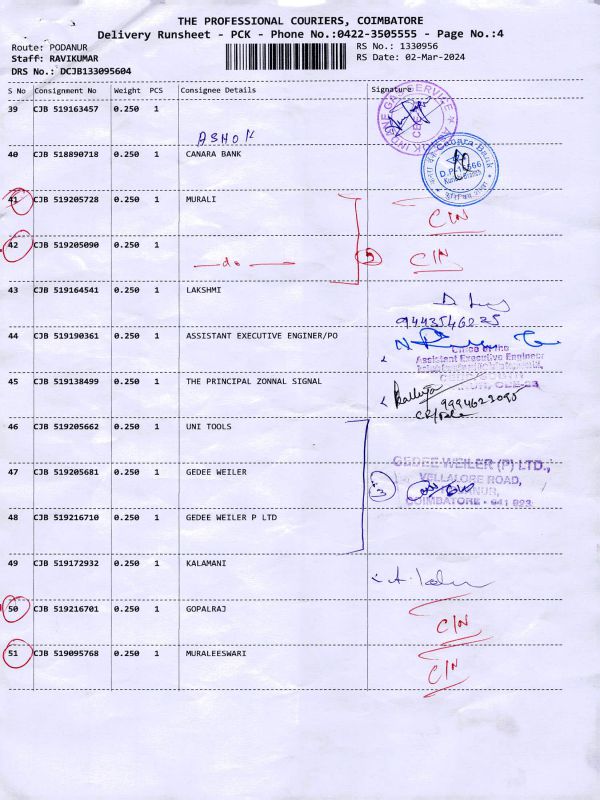 THE PROFESSIONAL COURIERS, COIMBATORE
Delivery Runsheet - PCK - Phone No.:0422-3505555 - Page No.:4
Route: PODANUR RS No.: 1330956
Staff: RAVIKUMAR RS Date: 02-Mar-2024
DRS No.: DCJB133095604
S No Consignment No Weight PCS Consignee Details Signature
39 CJB 519163457 0.250 1
ASHOK
40 CJB 518890718 0.250 1 CANARA BANK
Canara Bank
41 CJB 519205728 0.250 1 MURALI
C/N
42 CJB 519205090 0.250 1
—do— C/N
43 CJB 519164541 0.250 1 LAKSHMI
9443546235
44 CJB 519190361 0.250 1 ASSISTANT EXECUTIVE ENGINER/PO
Assistant Executive Engineer
45 CJB 519138499 0.250 1 THE PRINCIPAL ZONNAL SIGNAL
46 CJB 519205662 0.250 1 UNI TOOLS
47 CJB 519205681 0.250 1 GEDEE WEILER
GEDEE WEILER (P) LTD.,
VELLALORE ROAD,
COIMBATORE - 641 023
3
48 CJB 519216710 0.250 1 GEDEE WEILER P LTD
49 CJB 519172932 0.250 1 KALAMANI
50 CJB 519216701 0.250 1 GOPALRAJ
C/N
51 CJB 519095768 0.250 1 MURALEESWARI
C/N